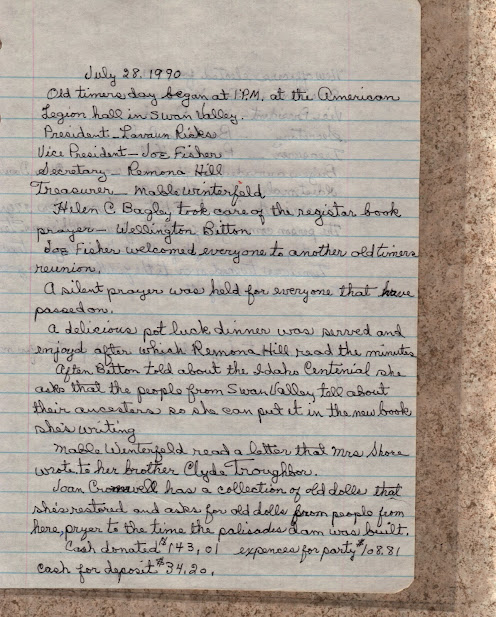 July 28, 1990
Old timers day began at 1 P.M. at the American
Legion hall in Swan Valley.
President - Lavaun Ricks
Vice President - Joe Fisher
Secretary - Remona Hill
Treasurer - Mable Winterfeld
Helen C Bagley took care of the registar book
prayer - Wellington Bitton
Joe Fisher welcomed everyone to another old timers
reunion.
A silent prayer was held for everyone that have
passed on.
A delicious pot luck dinner was served and
enjoyd after which Remona Hill read the minutes
Bitton told about the Idaho Centenial she
asks that the people from Swan Valley tell about
their ancesters so she can put it in the new book
she's writing
Mable Winterfeld read a letter that Mrs Shore
wrote to her brother Clyde Troughton.
Joan Cromwell has a collection of old dolls that
she's restored and asks for old dolls from people from
here, pryer to the time the palisades dam was built.
Cash donated $143.01 expences for party $108.81
cash for deposit $34.20.